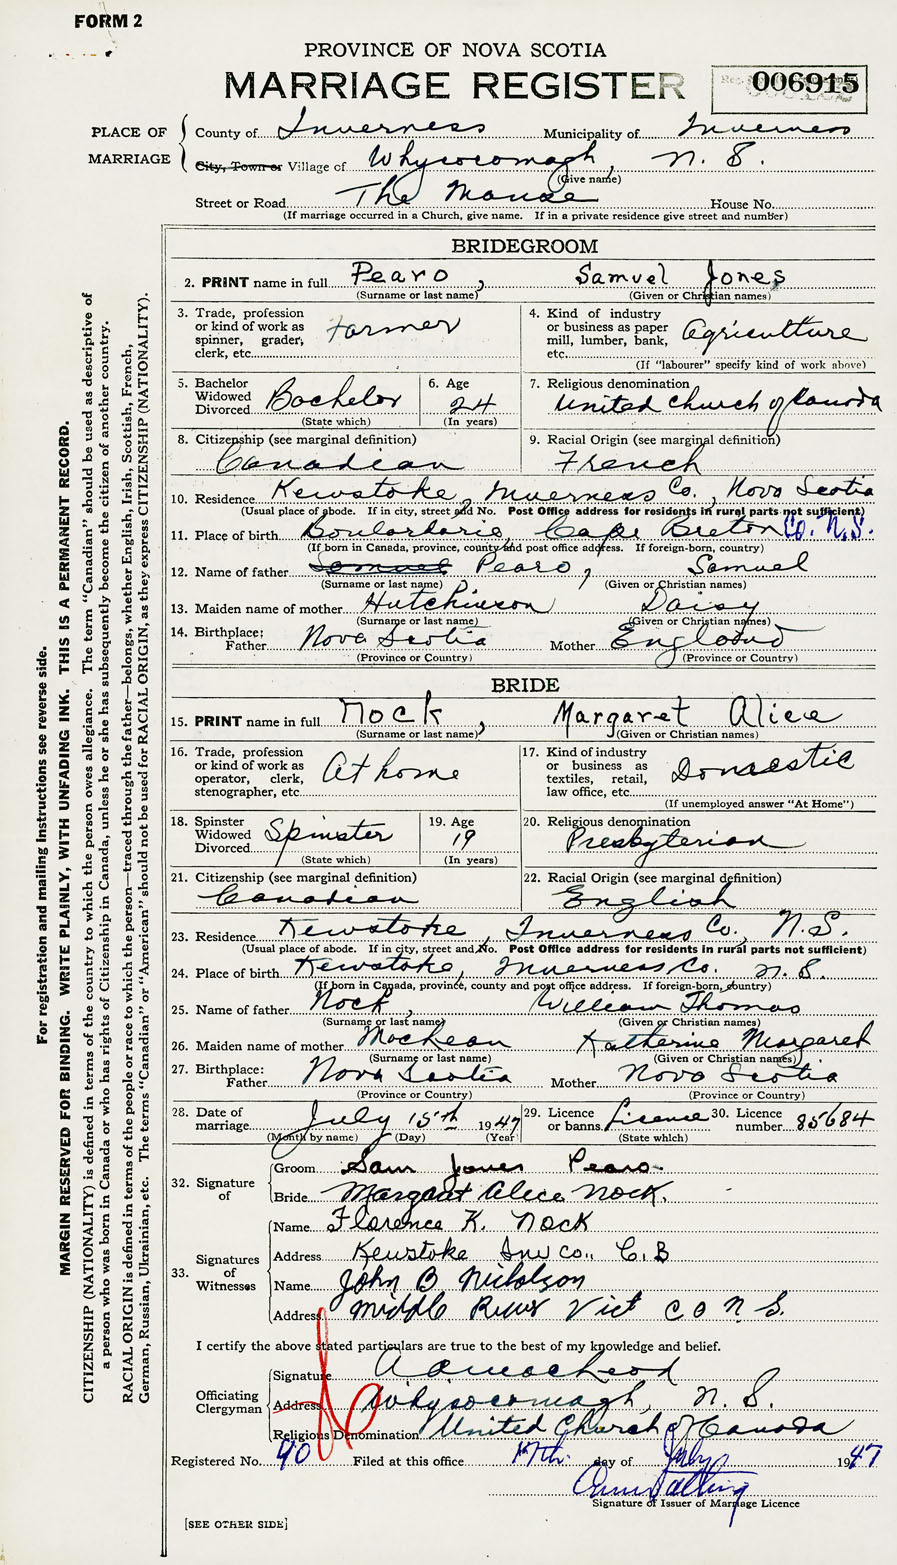 FORM 2
PROVINCE OF NOVA SCOTIA
MARRIAGE REGISTER
006915
PLACE OF MARRIAGE
County of Inverness Municipality of Inverness
City, Town or Village of Whycocomagh, N. S.
(Give name)
Street or Road The Manse House No.
(If marriage occurred in a Church, give name. If in a private residence give street and number)
BRIDEGROOM
2. PRINT name in full Pearo, Samuel Jones
(Surname or last name) (Given or Christian names)
3. Trade, profession or kind of work as spinner, grader, clerk, etc. Farmer
4. Kind of industry or business as paper mill, lumber, bank, etc. Agriculture
(If "labourer" specify kind of work above)
5. Bachelor Widowed Divorced Bachelor
(State which)
6. Age 24
(In years)
7. Religious denomination
United Church of Canada
8. Citizenship (see marginal definition)
Canadian
9. Racial Origin (see marginal definition)
French
10. Residence Kewstoke, Inverness Co., Nova Scotia
(Usual place of abode. If in city, street and No. Post Office address for residents in rural parts not sufficient)
11. Place of birth Boulardarie, Cape Breton Co. N.S.
(If born in Canada, province, county and post office address. If foreign-born, country)
12. Name of father Samuel Pearo, Samuel
(Surname or last name) (Given or Christian names)
13. Maiden name of mother Hutchinson Daisy
(Surname or last name) (Given or Christian names)
14. Birthplace: Father Nova Scotia Mother England
(Province or Country) (Province or Country)
BRIDE
15. PRINT name in full Nock, Margaret Alice
(Surname or last name) (Given or Christian names)
16. Trade, profession or kind of work as operator, clerk, stenographer, etc. At home
17. Kind of industry or business as textiles, retail, law office, etc. Domestic
(If unemployed answer "At Home")
18. Spinster Widowed Divorced Spinster
(State which)
19. Age 19
(In years)
20. Religious denomination
Presbyterian
21. Citizenship (see marginal definition)
Canadian
22. Racial Origin (see marginal definition)
English
23. Residence Kewstoke, Inverness Co., N.S.
(Usual place of abode. If in city, street and No. Post Office address for residents in rural parts not sufficient)
24. Place of birth Kewstoke, Inverness Co. N. S.
(If born in Canada, province, county and post office address. If foreign-born, country)
25. Name of father Nock, William Thomas
(Surname or last name) (Given or Christian names)
26. Maiden name of mother MacLean Katherine Margaret
(Surname or last name) (Given or Christian names)
27. Birthplace: Father Nova Scotia Mother Nova Scotia
(Province or Country) (Province or Country)
28. Date of marriage July 15th 1947
(Month by name) (Day) (Year)
29. Licence or banns Licence
(State which)
30. Licence number 85684
32. Signature of
Groom Sam Jones Pearo
Bride Margaret Alice Nock.
33. Signatures of Witnesses
Name Florence K. Nock
Address Kewstoke Inv Co., C.B
Name John B Nicholson
Address Middle River Vict CO N. S.
I certify the above stated particulars are true to the best of my knowledge and belief.
Officiating Clergyman
Signature A. D. MacLeod
Address Whycocomagh, N. S.
Religious Denomination United Church of Canada
Registered No. 90 Filed at this office 17th. day of July 1947
Signature of Issuer of Marriage Licence
[SEE OTHER SIDE]
For registration and mailing instructions see reverse side.
MARGIN RESERVED FOR BINDING. WRITE PLAINLY, WITH UNFADING INK. THIS IS A PERMANENT RECORD.
CITIZENSHIP (NATIONALITY) is defined in terms of the country to which the person owes allegiance. The term "Canadian" should be used as descriptive of
a person who was born in Canada or who has rights of Citizenship in Canada, unless he or she has subsequently become the citizen of another country.
RACIAL ORIGIN is defined in terms of the people or race to which the person—traced through the father—belongs, whether English, Irish, Scottish, French,
German, Russian, Ukrainian, etc. The terms "Canadian" or "American" should not be used for RACIAL ORIGIN, as they express CITIZENSHIP (NATIONALITY).